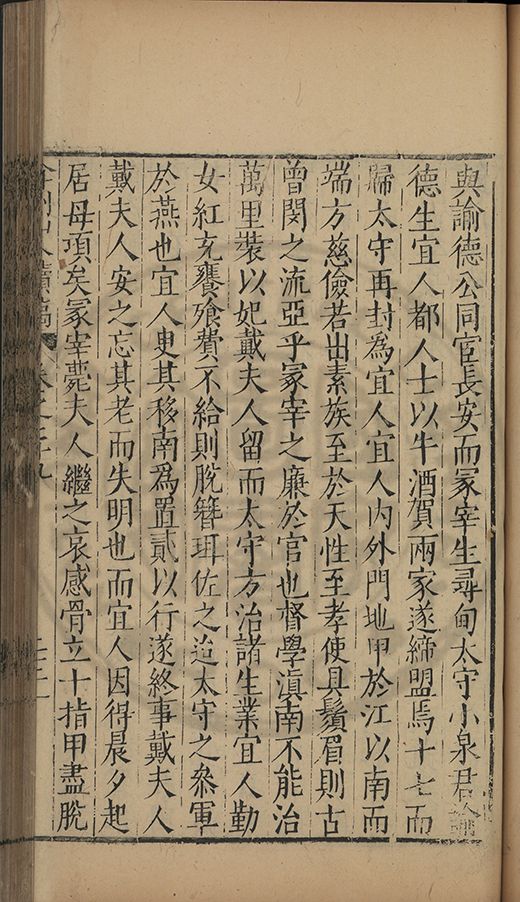 與諭德公同官長安而冢宰生尋甸太守小泉君諭
德生宜人都人士以牛酒賀兩家遂締盟焉十七而
歸太守再封為宜人宜人內外門地甲於江以南而
端方慈儉若出素族至於天性至孝使具鬚眉則古
曾閔之流亞乎冢宰之廉於官也督學滇南不能治
萬里裝以妃戴夫人留而太守方治諸生業宜人勤
女紅充饔飧費不給則脫簪珥佐之迨太守之叅軍
於燕也宜人更其移南為置貳以行遂終事戴夫人
戴夫人安之忘其老而失明也而宜人因得晨夕起
居母項矣冢宰薨夫人繼之哀感骨立十指甲盡脫
弇州山人續稿 卷之